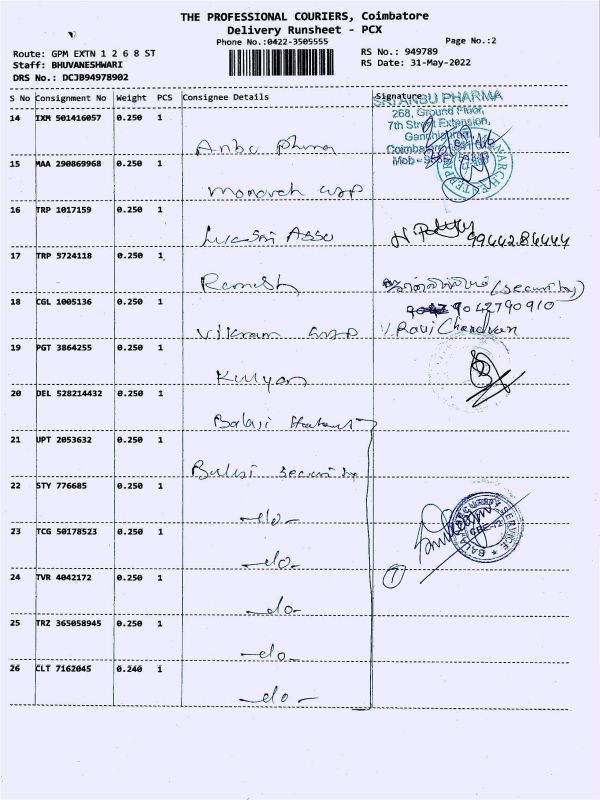 THE PROFESSIONAL COURIERS, Coimbatore
Delivery Runsheet - PCX
Phone No.:0422-3505555
Page No.:2
Route: GPM EXTN 1 2 6 8 ST
RS No.: 949789
Staff: BHUVANESHWARI
RS Date: 31-May-2022
DRS No.: DCJB94978902
S No Consignment No Weight PCS Consignee Details Signature
SRI ANBU PHARMA
268, Ground Floor,
7th Street Extension,
14 IXM 501416057 0.250 1
Anbu Pharma
15 MAA 290869968 0.250 1
Monarch
16 TRP 1017159 0.250 1
Asso
99442.84444
17 TRP 5724118 0.250 1
Ramesh
(security)
9042790910
18 CGL 1005136 0.250 1
Vikram
V. Ravi Chandran
19 PGT 3864255 0.250 1
Kulyan
20 DEL 528214432 0.250 1
Balaji
21 UPT 2053632 0.250 1
Security
22 STY 776685 0.250 1
-do-
23 TCG 50178523 0.250 1
-do-
7
24 TVR 4042172 0.250 1
-do-
25 TRZ 365058945 0.250 1
-do-
26 CLT 7162045 0.240 1
-do-